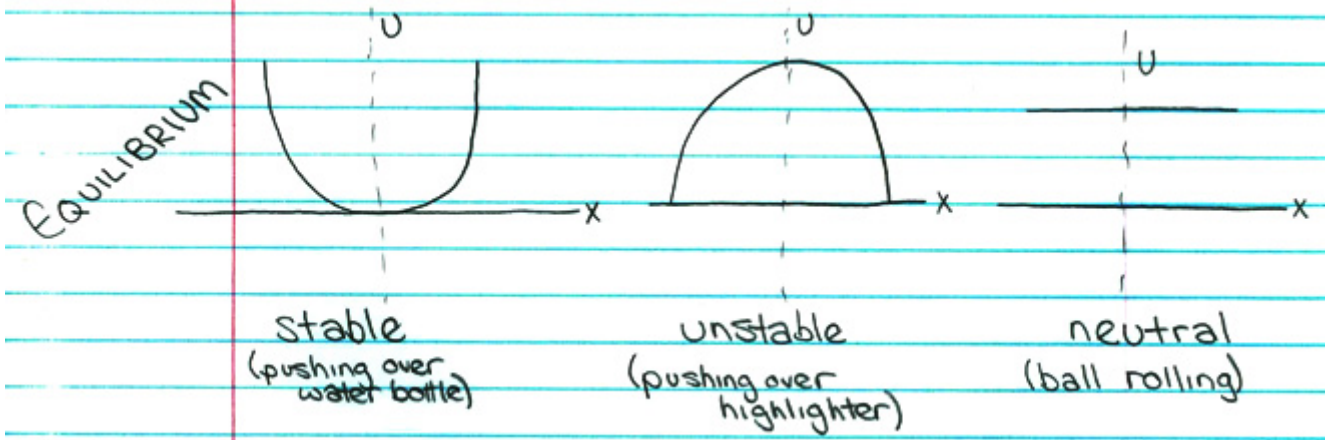 EQUILIBRIUM
U
U
U
X
X
X
stable
(pushing over
water bottle)
unstable
(pushing over
highlighter)
neutral
(ball rolling)